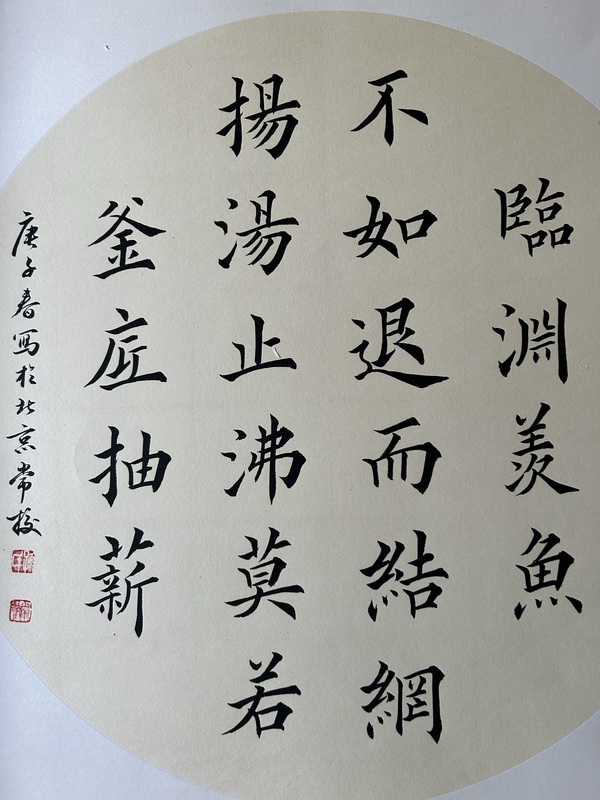 臨淵羨魚
不如退而結網
揚湯止沸莫若
釜底抽薪
庚子春寫於北京常校